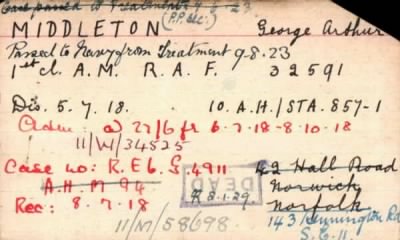 Case passed to Treatment 9.6.23.
(P.P. etc.)
MIDDLETON George Arthur
Passed to Navy from Treatment 9.8.23
1st cl. A.M. R.A.F. 32591
Dis. 5.7.18. 10.A.H./STA.857-1
@ 27/6 fr 6-7-18-8-10-18
11/W/34525
Case no: R.E 6. G. 4911
A.H.M 94
Rec: 8.7.18
DEAD
R 8.1.29.
42 Hall Road
Norwich
Norfolk
143 Kennington Rd
S.E.11.
11/M/58698